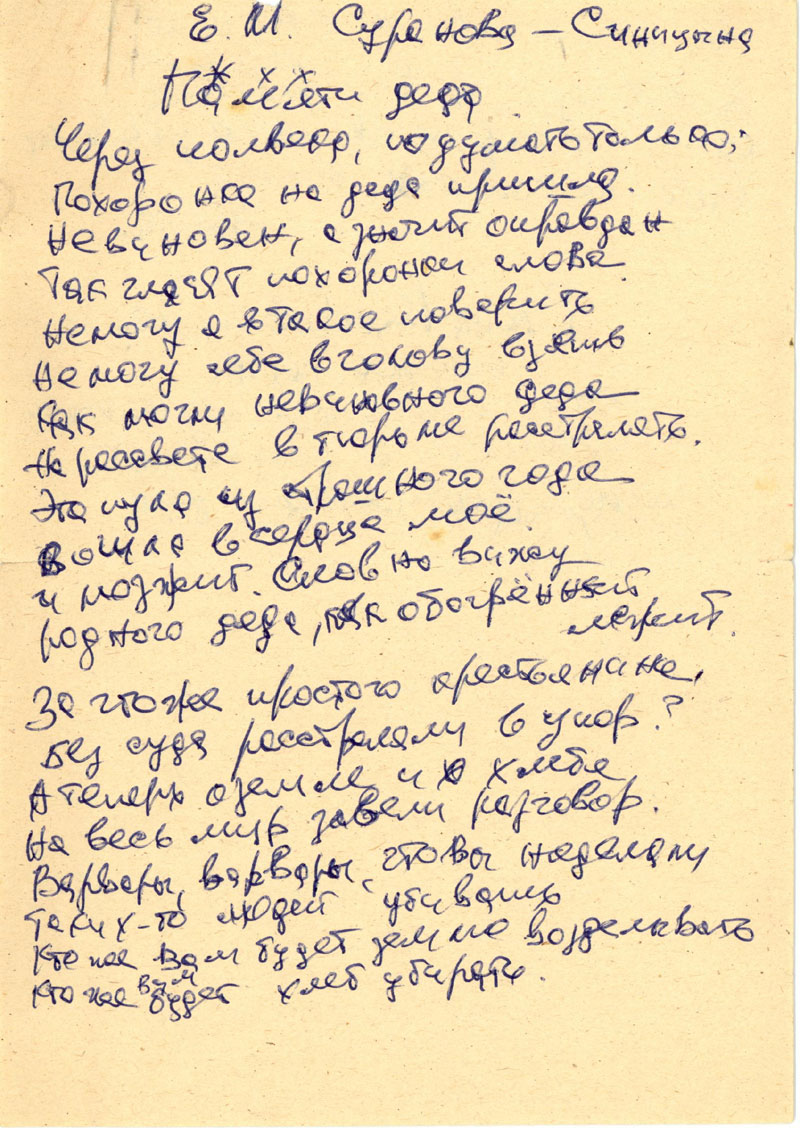 Е. М. Суранова – Синицына
Памяти деда
* * *
Через полвека, подумать только,
Похоронка на деда пришла.
Невиновен, а значит оправдан
Так гласят похоронки слова
Не могу я в такое поверить
Не могу себе в голову взять
Как могли невиновного деда
На рассвете в тюрьме расстрелять.
Эта пуля из страшного года
Вошла в сердце моё
и мозжит. Словно вижу
родного деда, как обогрённый
лежит.
За что же простого крестьянина,
Без суда расстреляли в упор?
А теперь о земле и о хлебе
На весь мир завели разговор.
Варвары, варвары, что вы наделали
Таких-то людей убивать
Кто же вам будет землю возделывать
Кто же вам будет хлеб убирать.